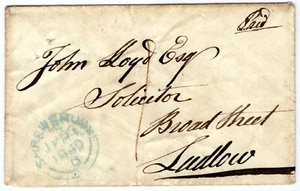 Paid
John Lloyd Esq
Solicitor
Broad Street
Ludlow
SHREWSBURY